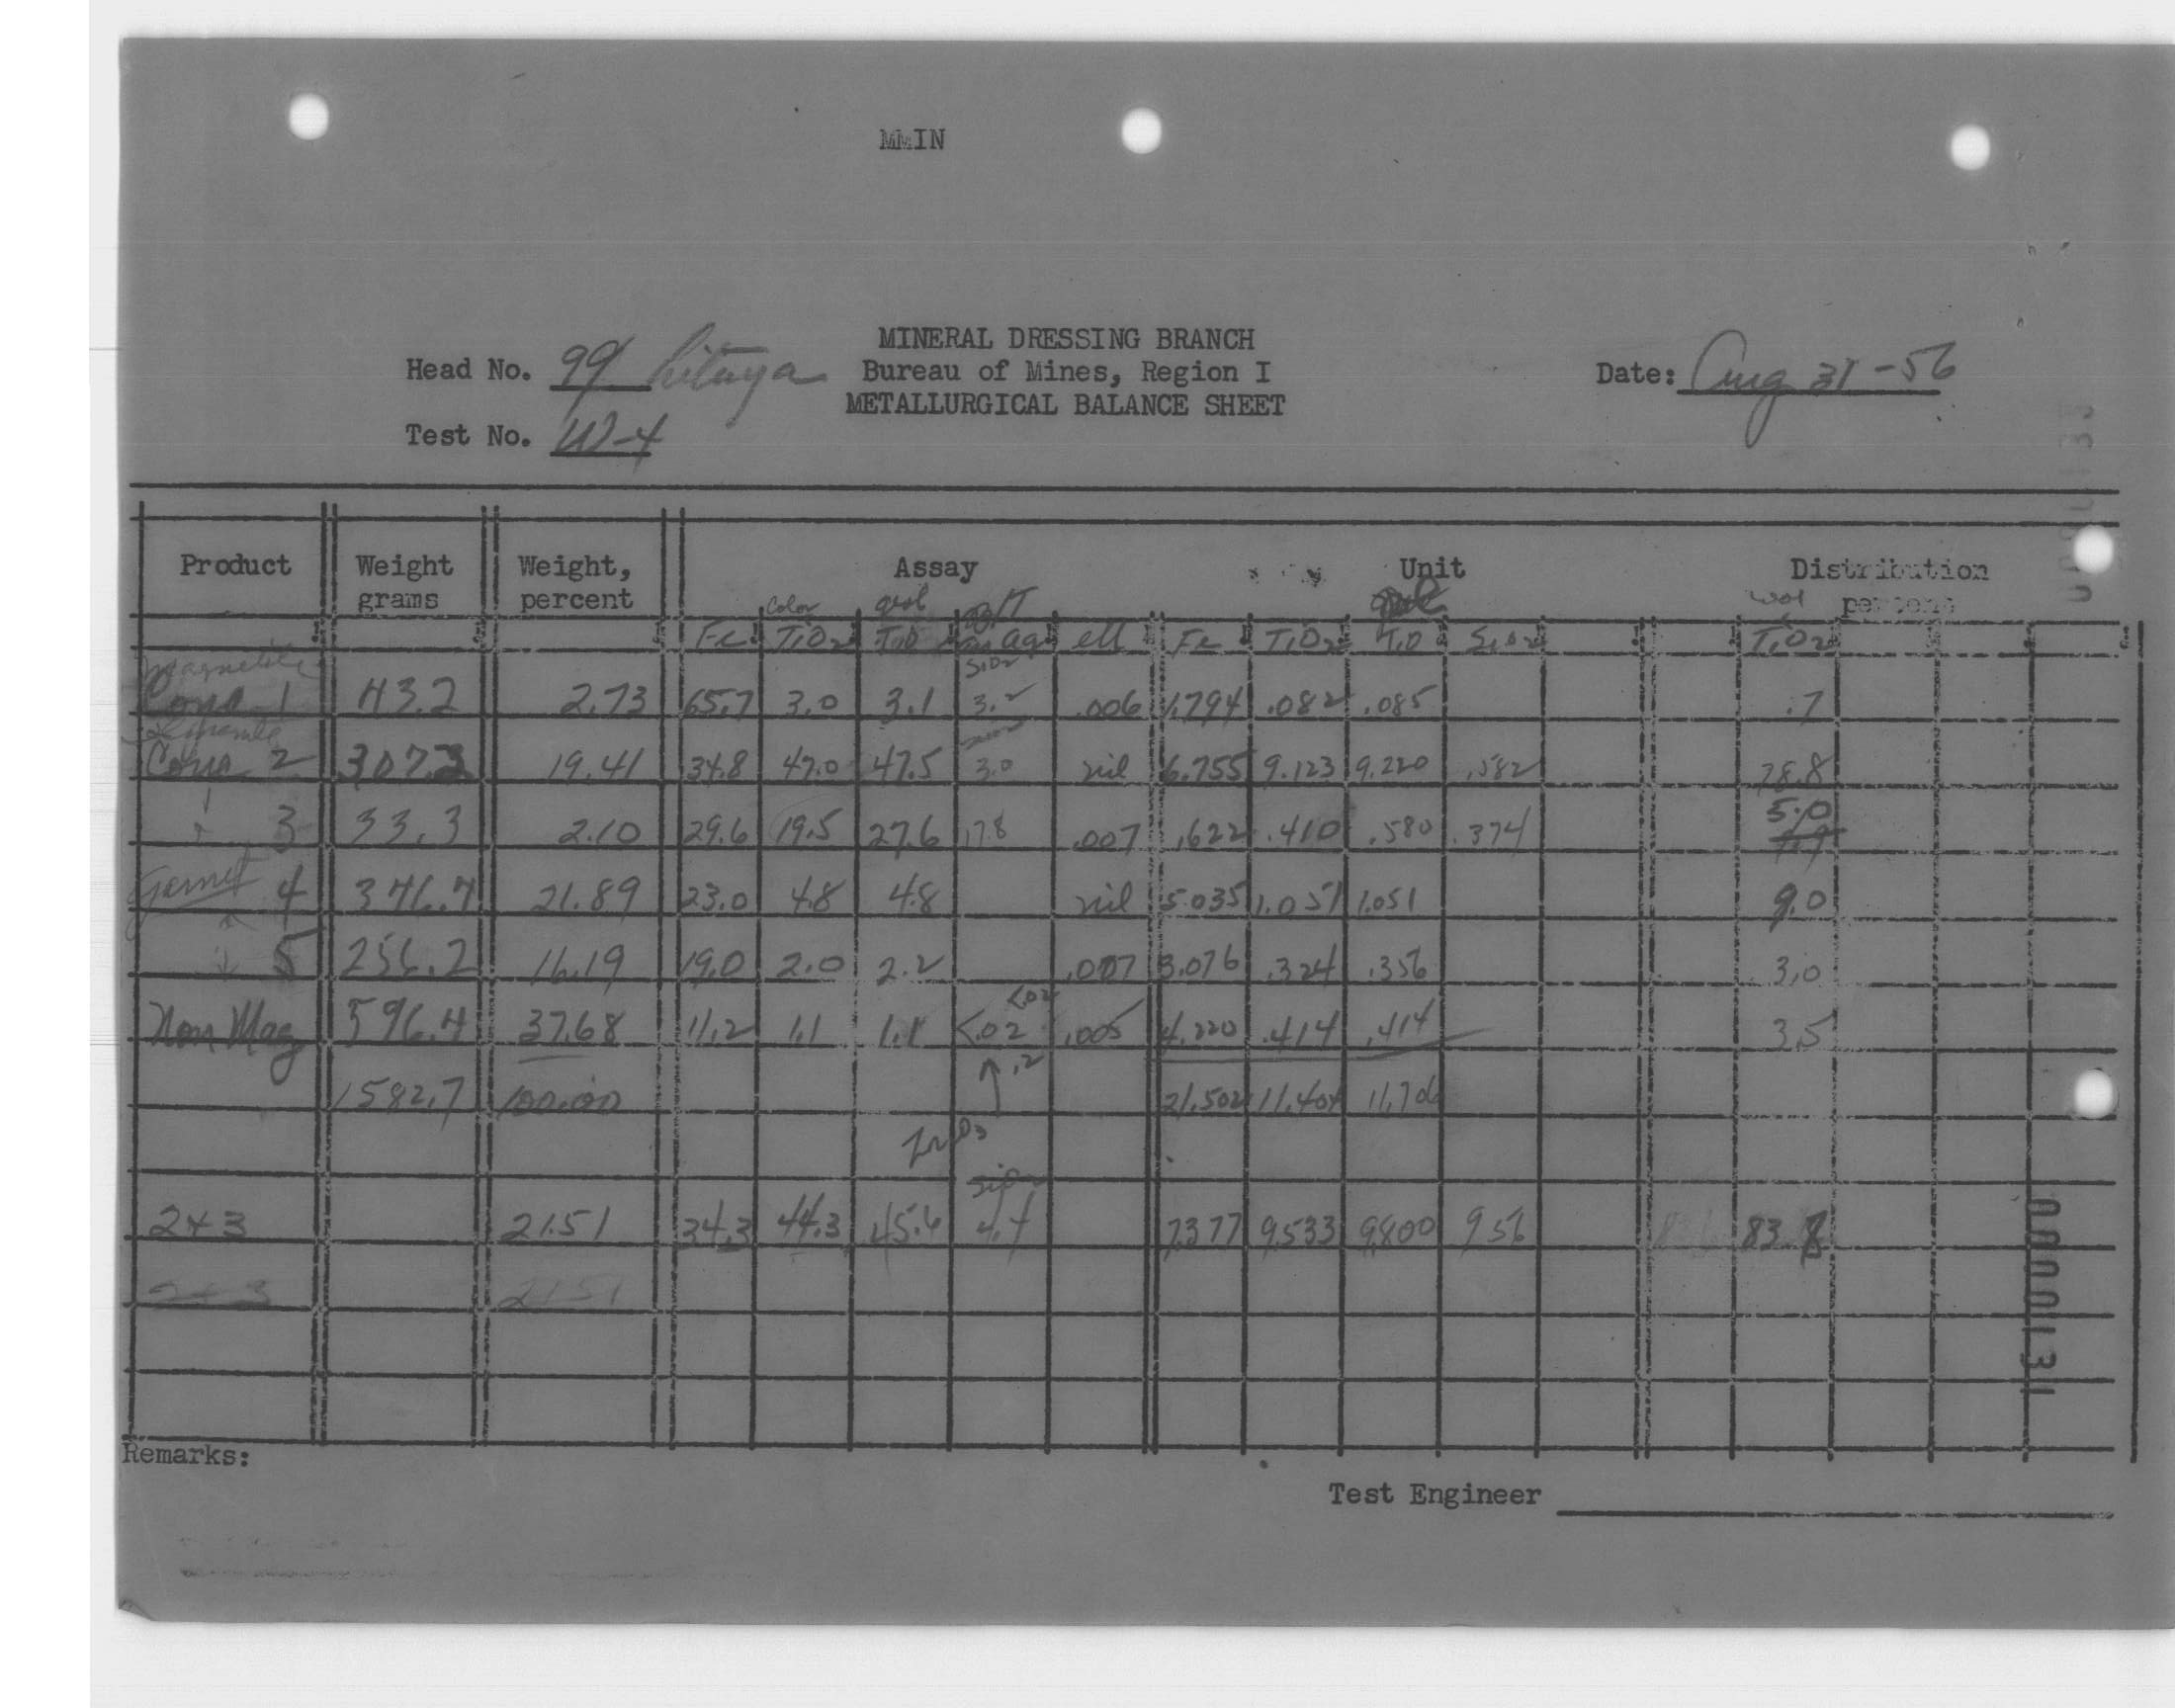 MMIN
MINERAL DRESSING BRANCH
Head No. 99 Lituya Bureau of Mines, Region I Date: Aug 31-56
METALLURGICAL BALANCE SHEET
Test No. W-4
Product Weight grams Weight, percent Assay Unit Distribution percent
Color grav oz/T grav vol
Fe TiO2 TiO Au Ag eU Fe TiO2 TiO SiO2 TiO2
Magnetite SiO2
Conc 1 43.2 2.73 65.7 3.0 3.1 3.2 .006 1.794 .082 .085 .7
Ilmenite
Conc 2 307.2 19.41 34.8 47.0 47.5 3.0 nil 6.755 9.123 9.220 .582 78.8
3 33.3 2.10 29.6 19.5 27.6 17.8 .007 .622 .410 .580 .374 5.0
Garnet 4 346.4 21.89 23.0 4.8 4.8 nil 5.035 1.051 1.051 9.0
5 256.2 16.19 19.0 2.0 2.2 .007 3.076 .324 .356 3.0
<.02
Non Mag 596.4 37.68 11.2 1.1 1.1 <.02 .005 4.220 .414 .414 3.5
.2
1582.7 100.00 21.502 11.404 11.706
SiO2
2+3 21.51 34.3 44.3 45.6 4.4 7.377 9.533 9.800 956 83.8
2+3 21.51
Remarks:
Test Engineer
0000131